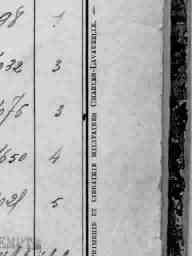 98 1
032 3
675 3
650 4
028 5
PRIMERIE ET LIBRAIRIE MILITAIRES CHARLES-LAVAUZELLE. —